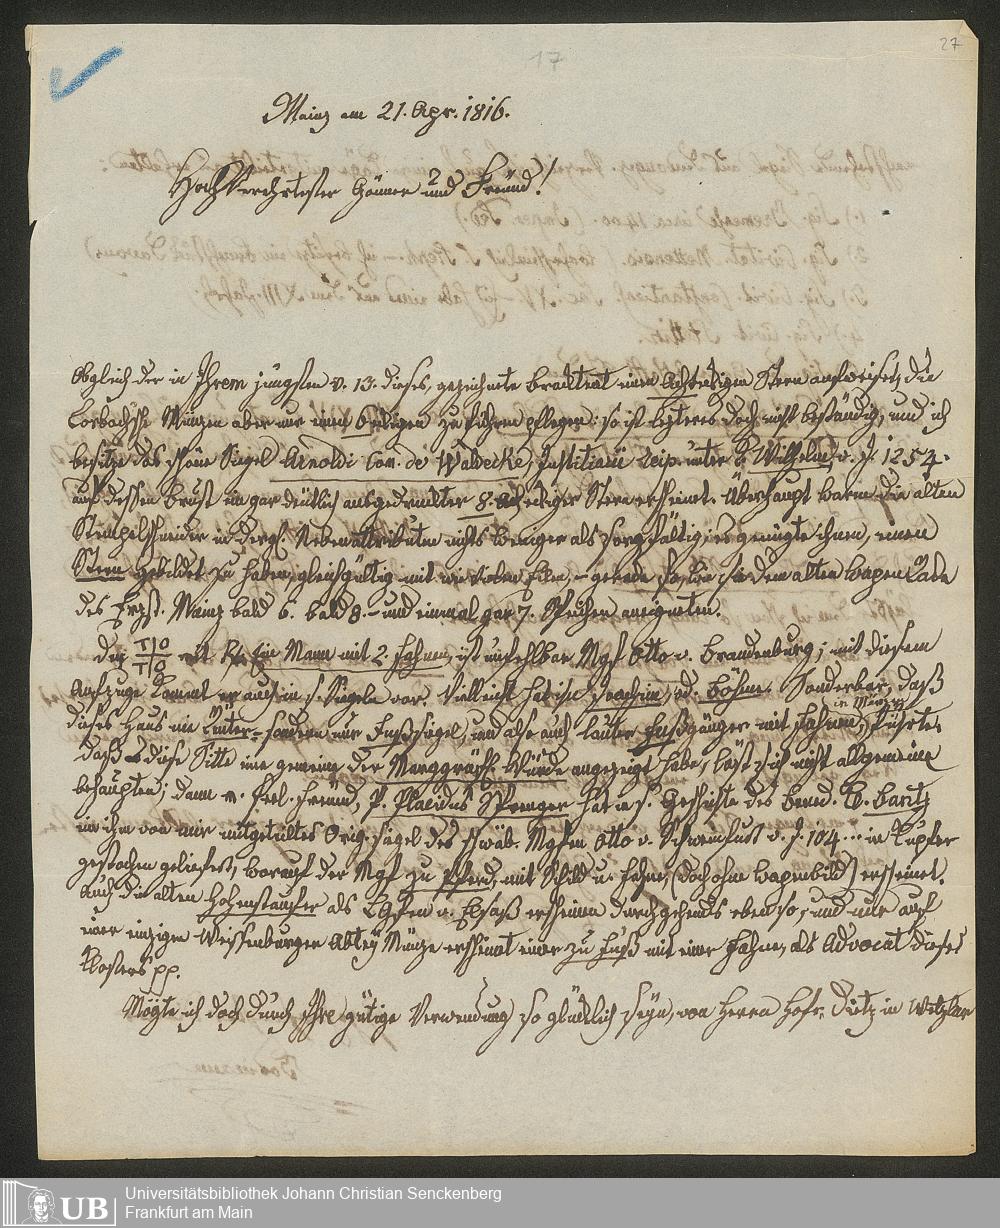 27
17
Mainz am 21. Apr. 1816.
HochVerehrtester Gönner und Freund!
Obgleich der in Ihrem jüngsten v. 13. dieses, gezeichnete Brakteat einen Achtekigen Stern aufweiset, die
Corbachsche Münzen aber nur einen 6ekigen zu führen pflegen: so ist lezteres doch nicht beständig, und ich
besitze das schöne Siegel Arnoldi Com. de Waldecke, Justitiarii Imp. unter K. Wilhelm, v. J. 1254.
auf dessen Brust ein gar deutlich ausgedrukter 8. ekiger Stern erscheint. Überhaupt waren die alten
Stempelschneider in dergl. Nebenattributen nichts weniger als sorgfältig; es genügte ihnen, einen
Stern gebildet zu haben, gleichgültig mit wie vielen Eken, – gerade so, wie sie dem alten Wapen Rade
des Erzst. Mainz bald 6. bald 8. – und einmal gar 7. Speichen aneigneten.
Der T|O T|O mit Rs. Ein Mann mit 2. Fahnen, ist unfehlbar Mgf Otto v. Brandenburg; mit diesem
Aufzuge kommt er auch in s. Siegeln vor. Vielleicht hat ihn Joachim, od. Böhme. Sonderbar, daß
dieses Haus nie Reuter- sondern nur Fußsiegel, und also auch lauter Fußgänger mit Fahnen, in Münzen führte;
daß diese Sitte eine gemeine der Marggräfl. Würde angezeigt habe, läßt sich nicht allgemein
behaupten; dann m. seel. Freund, P. Placidus Sprenger hat in s. Geschichte des Bened. Kl. Bantz
ein ihm von mir mitgeteiltes Orig. siegel des schwäb. Mgfen Otto v. Schweinfurt v. J. 104... in Kupfer
gestochen geliefert, worauf der Mgf zu Pferd, mit Schild u. Fahne, (doch ohne Wapenbild) erscheinet.
Auch die alten Hohenstaufer als LGfen v. Elsaß erscheinen durchgehends ebenso, und nur auf
einer einzigen Weissenburger Abtey Münze erscheinet einer zu Fuß mit einer Fahne, als Advocat dieses
Klosters pp.
Mögte ich doch durch Ihre gütige Verwendung so glücklich seyn, von Herrn Hofr. Dietz in Wetzlar
UB
Universitätsbibliothek Johann Christian Senckenberg
Frankfurt am Main